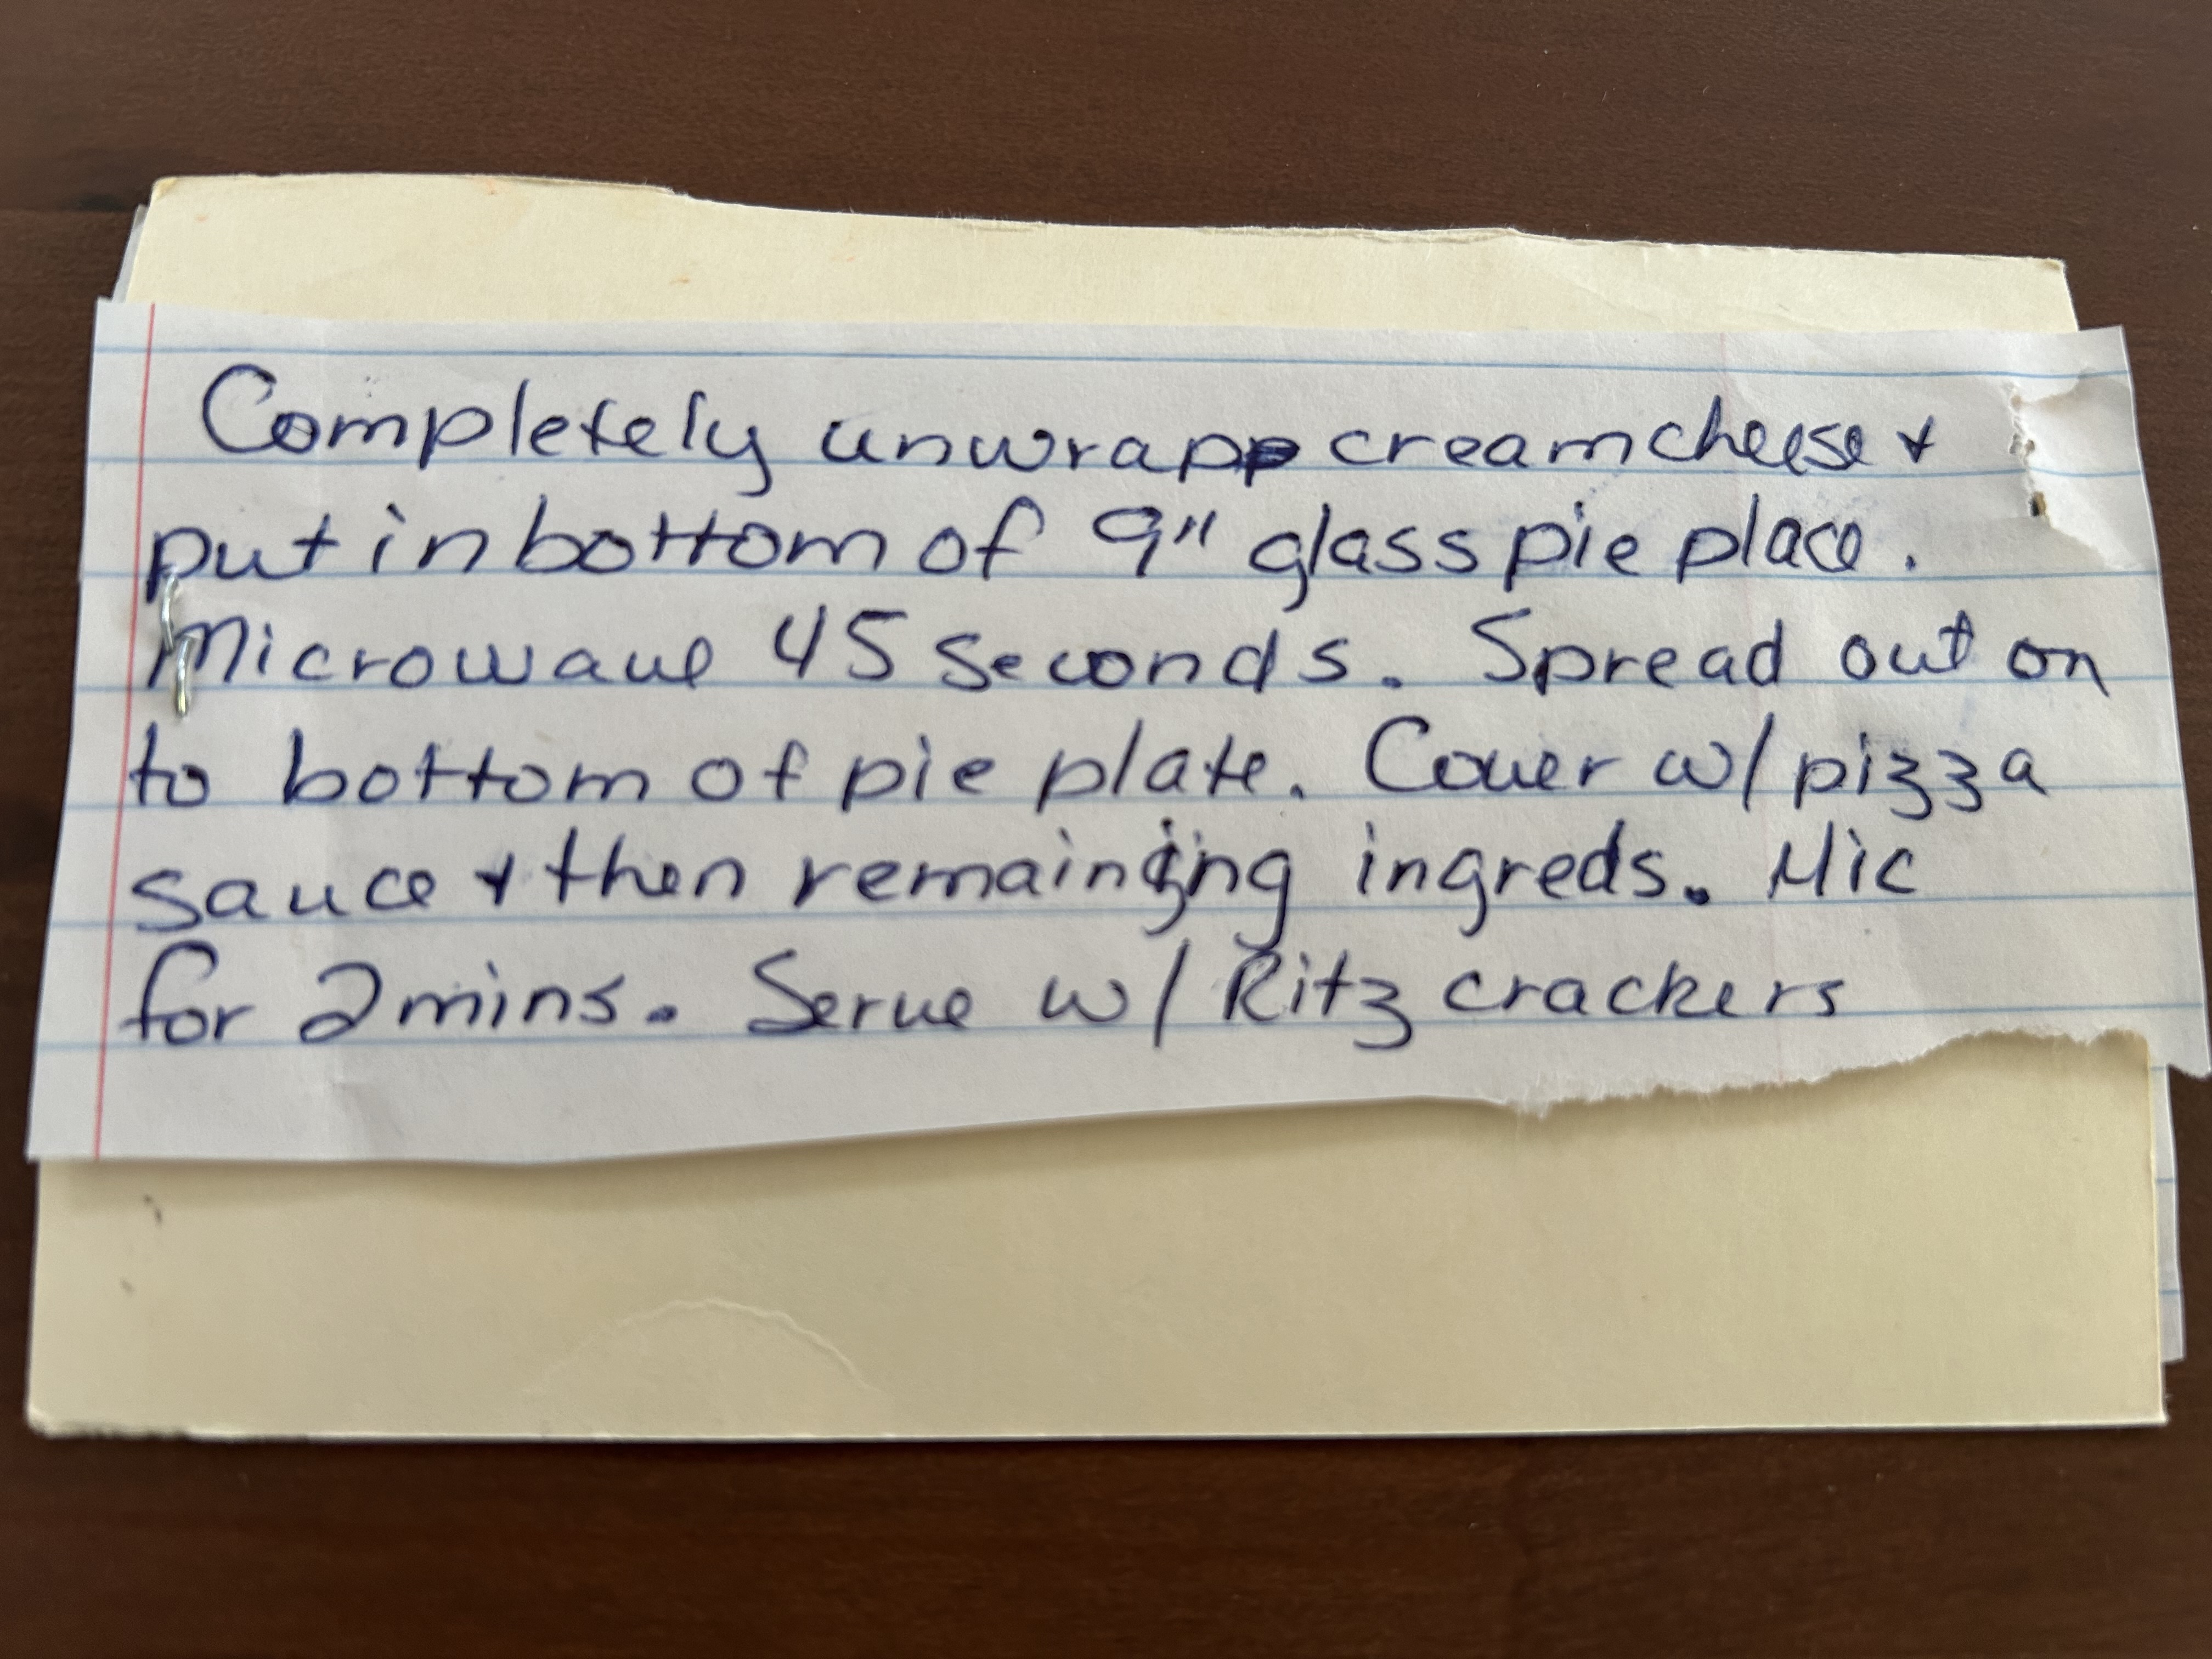 Completely unwrapp creamcheese &
put in bottom of 9" glass pie place.
Microwave 45 seconds. Spread out on
to bottom of pie plate. Cover w/ pizza
sauce & then remaining ingreds. Mic
for 2 mins. Serve w/ Ritz crackers